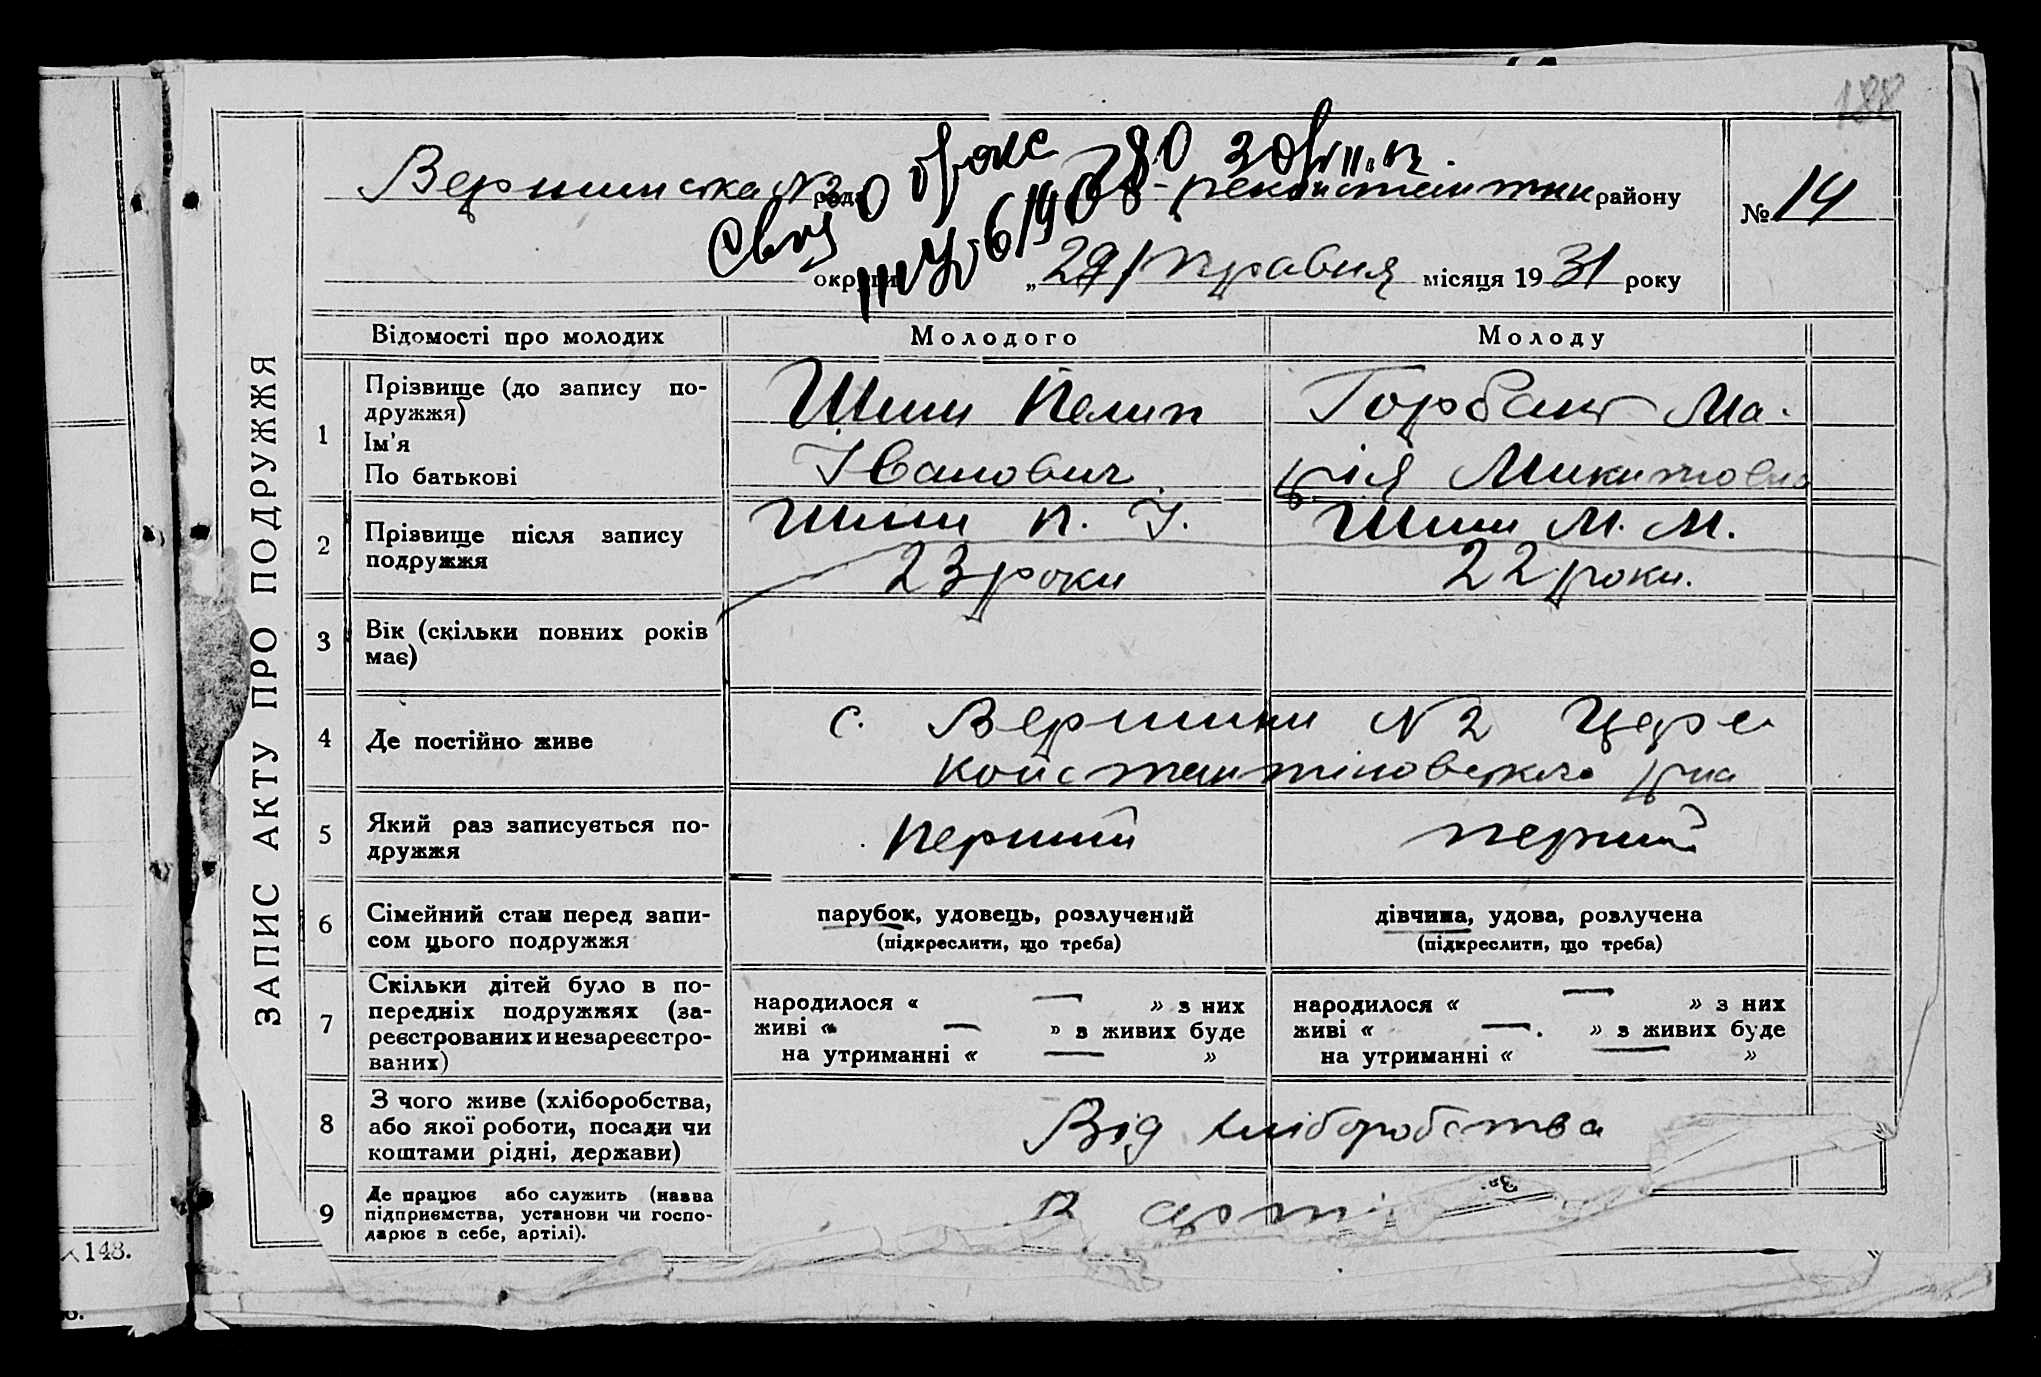 188
Вершинська №2 рада района
№ 14
округи „29" травня місяця 1931 року
ЗАПИС АКТУ ПРО ПОДРУЖЖЯ
Відомості про молодих Молодого Молоду
1 Прізвище (до запису по-
дружжя)
Ім'я
По батькові
Шиш Пелип
Іванович
Горбань Ма-
рія Микитовна
2 Прізвище після запису
подружжя
Шиш П. І.
23 роки
Шиш М. М.
22 роки.
3 Вік (скільки повних років
має)
4 Де постійно живе
с. Вершини №2 Царе
константіновського р-на
5 Який раз записується по-
дружжя
перший перший
6 Сімейний стан перед запи-
сом цього подружжя
парубок, удовець, розлучений
(підкреслити, що треба)
дівчина, удова, розлучена
(підкреслити, що треба)
7 Скільки дітей було в по-
передніх подружжях (за-
реєстрованих и незареєстро-
ваних)
народилося « — » з них
живі « — » з живих буде
на утриманні « — »
народилося « — » з них
живі « — . » з живих буде
на утриманні « — »
8 З чого живе (хліборобства,
або якої роботи, посади чи
коштами рідні, держави)
Від хліборобства
9 Де працює або служить (назва
підприємства, установи чи госпо-
дарює в себе, артілі).
В арті
148.